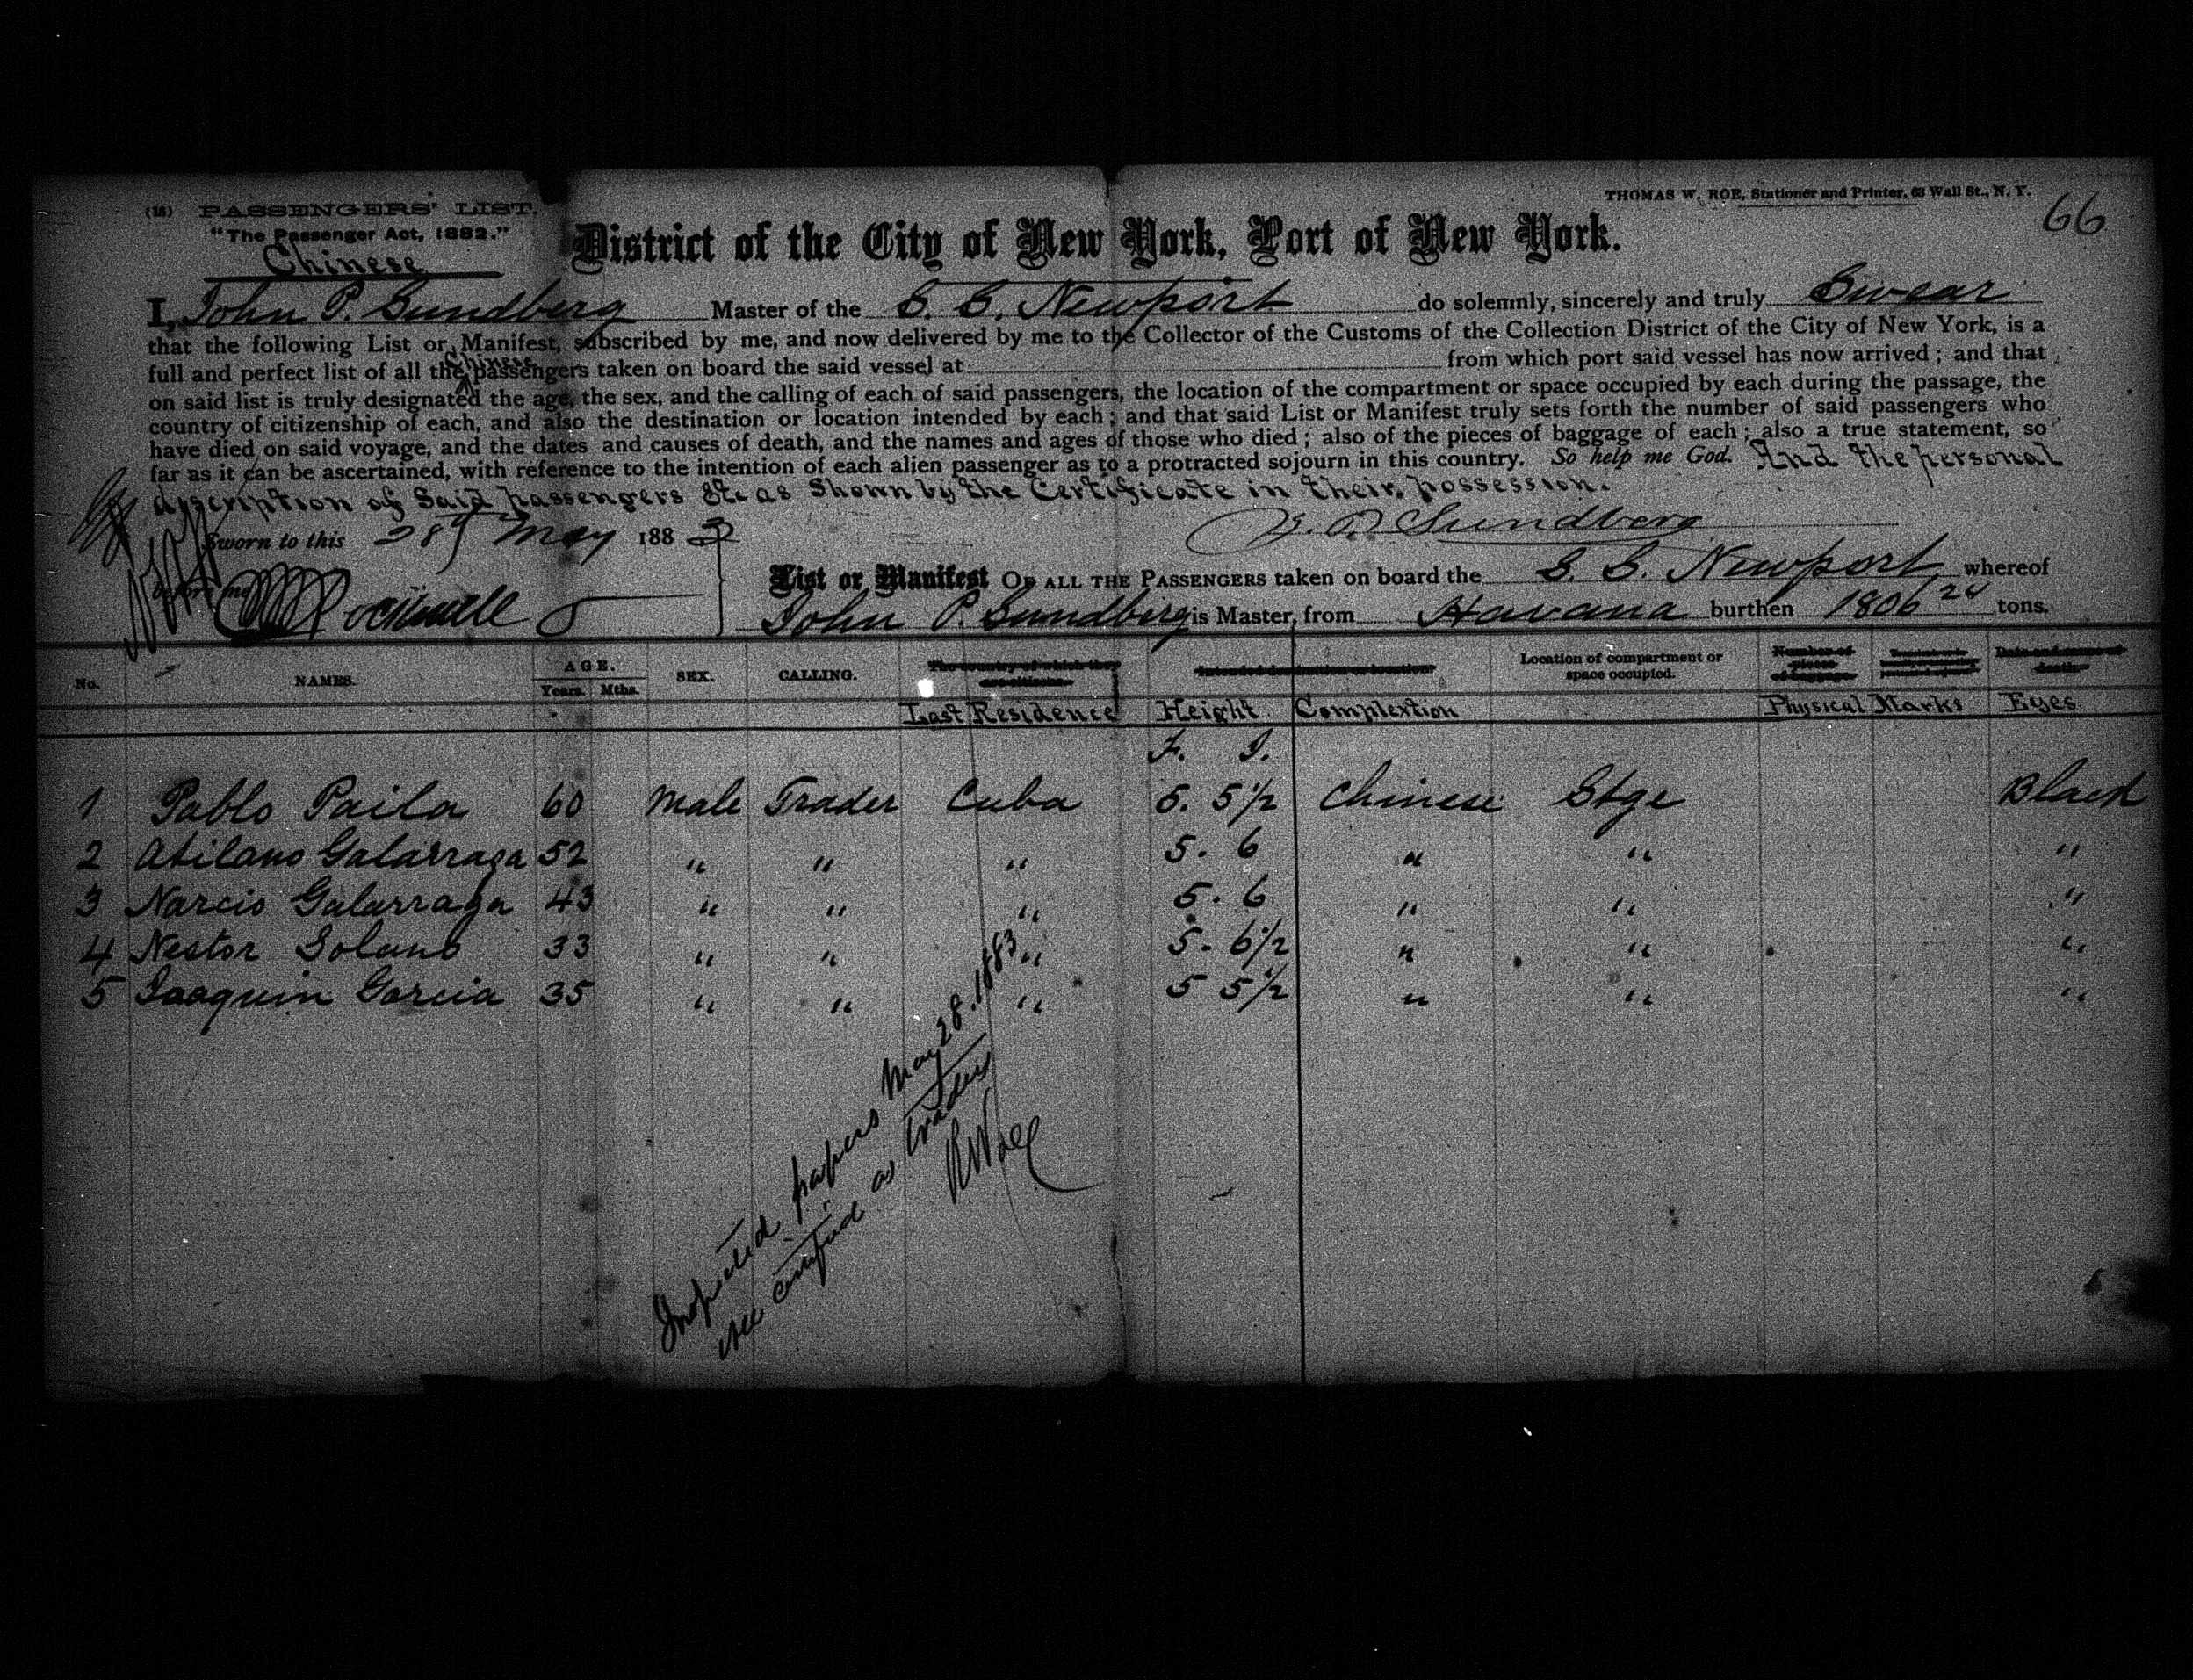 (18) PASSENGERS' LIST.
THOMAS W. ROE, Stationer and Printer, 63 Wall St., N. Y.
66
"The Passenger Act, 1882."
Chinese
District of the City of New York, Port of New York.
I, John P. Sundberg Master of the S. S. Newport do solemnly, sincerely and truly Swear
that the following List or Manifest, subscribed by me, and now delivered by me to the Collector of the Customs of the Collection District of the City of New York, is a
full and perfect list of all the Chinese passengers taken on board the said vessel at from which port said vessel has now arrived; and that
on said list is truly designated the age, the sex, and the calling of each of said passengers, the location of the compartment or space occupied by each during the passage, the
country of citizenship of each, and also the destination or location intended by each; and that said List or Manifest truly sets forth the number of said passengers who
have died on said voyage, and the dates and causes of death, and the names and ages of those who died; also of the pieces of baggage of each; also a true statement, so
far as it can be ascertained, with reference to the intention of each alien passenger as to a protracted sojourn in this country. So help me God. And the personal
description of said passengers &c as shown by the Certificate in their possession.
Sworn to this 28 May 1883
J. P. Sundberg
before me
List or Manifest OF ALL THE PASSENGERS taken on board the S. S. Newport whereof
John P. Sundberg is Master, from Havana burthen 1806 tons.
No. NAMES. AGE. Years. Mths. SEX. CALLING. The country of which they are citizens. Intended destination or location. Location of compartment or space occupied. Number of pieces of baggage. Date and cause of death.
Last Residence Height Complextion Physical Marks Eyes
F. I.
1 Pablo Paila 60 Male Trader Cuba 5. 5 1/2 Chinese Stge Black
2 Atilano Galarraga 52 " " " 5. 6 " " "
3 Narcis Galarraga 43 " " " 5. 6 " " "
4 Nestor Solano 33 " " " 5. 6 1/2 " " "
5 Joaquin Garcia 35 " " " 5 5 1/2 " " "
Inspected papers May 28. 1883
all certified as traders